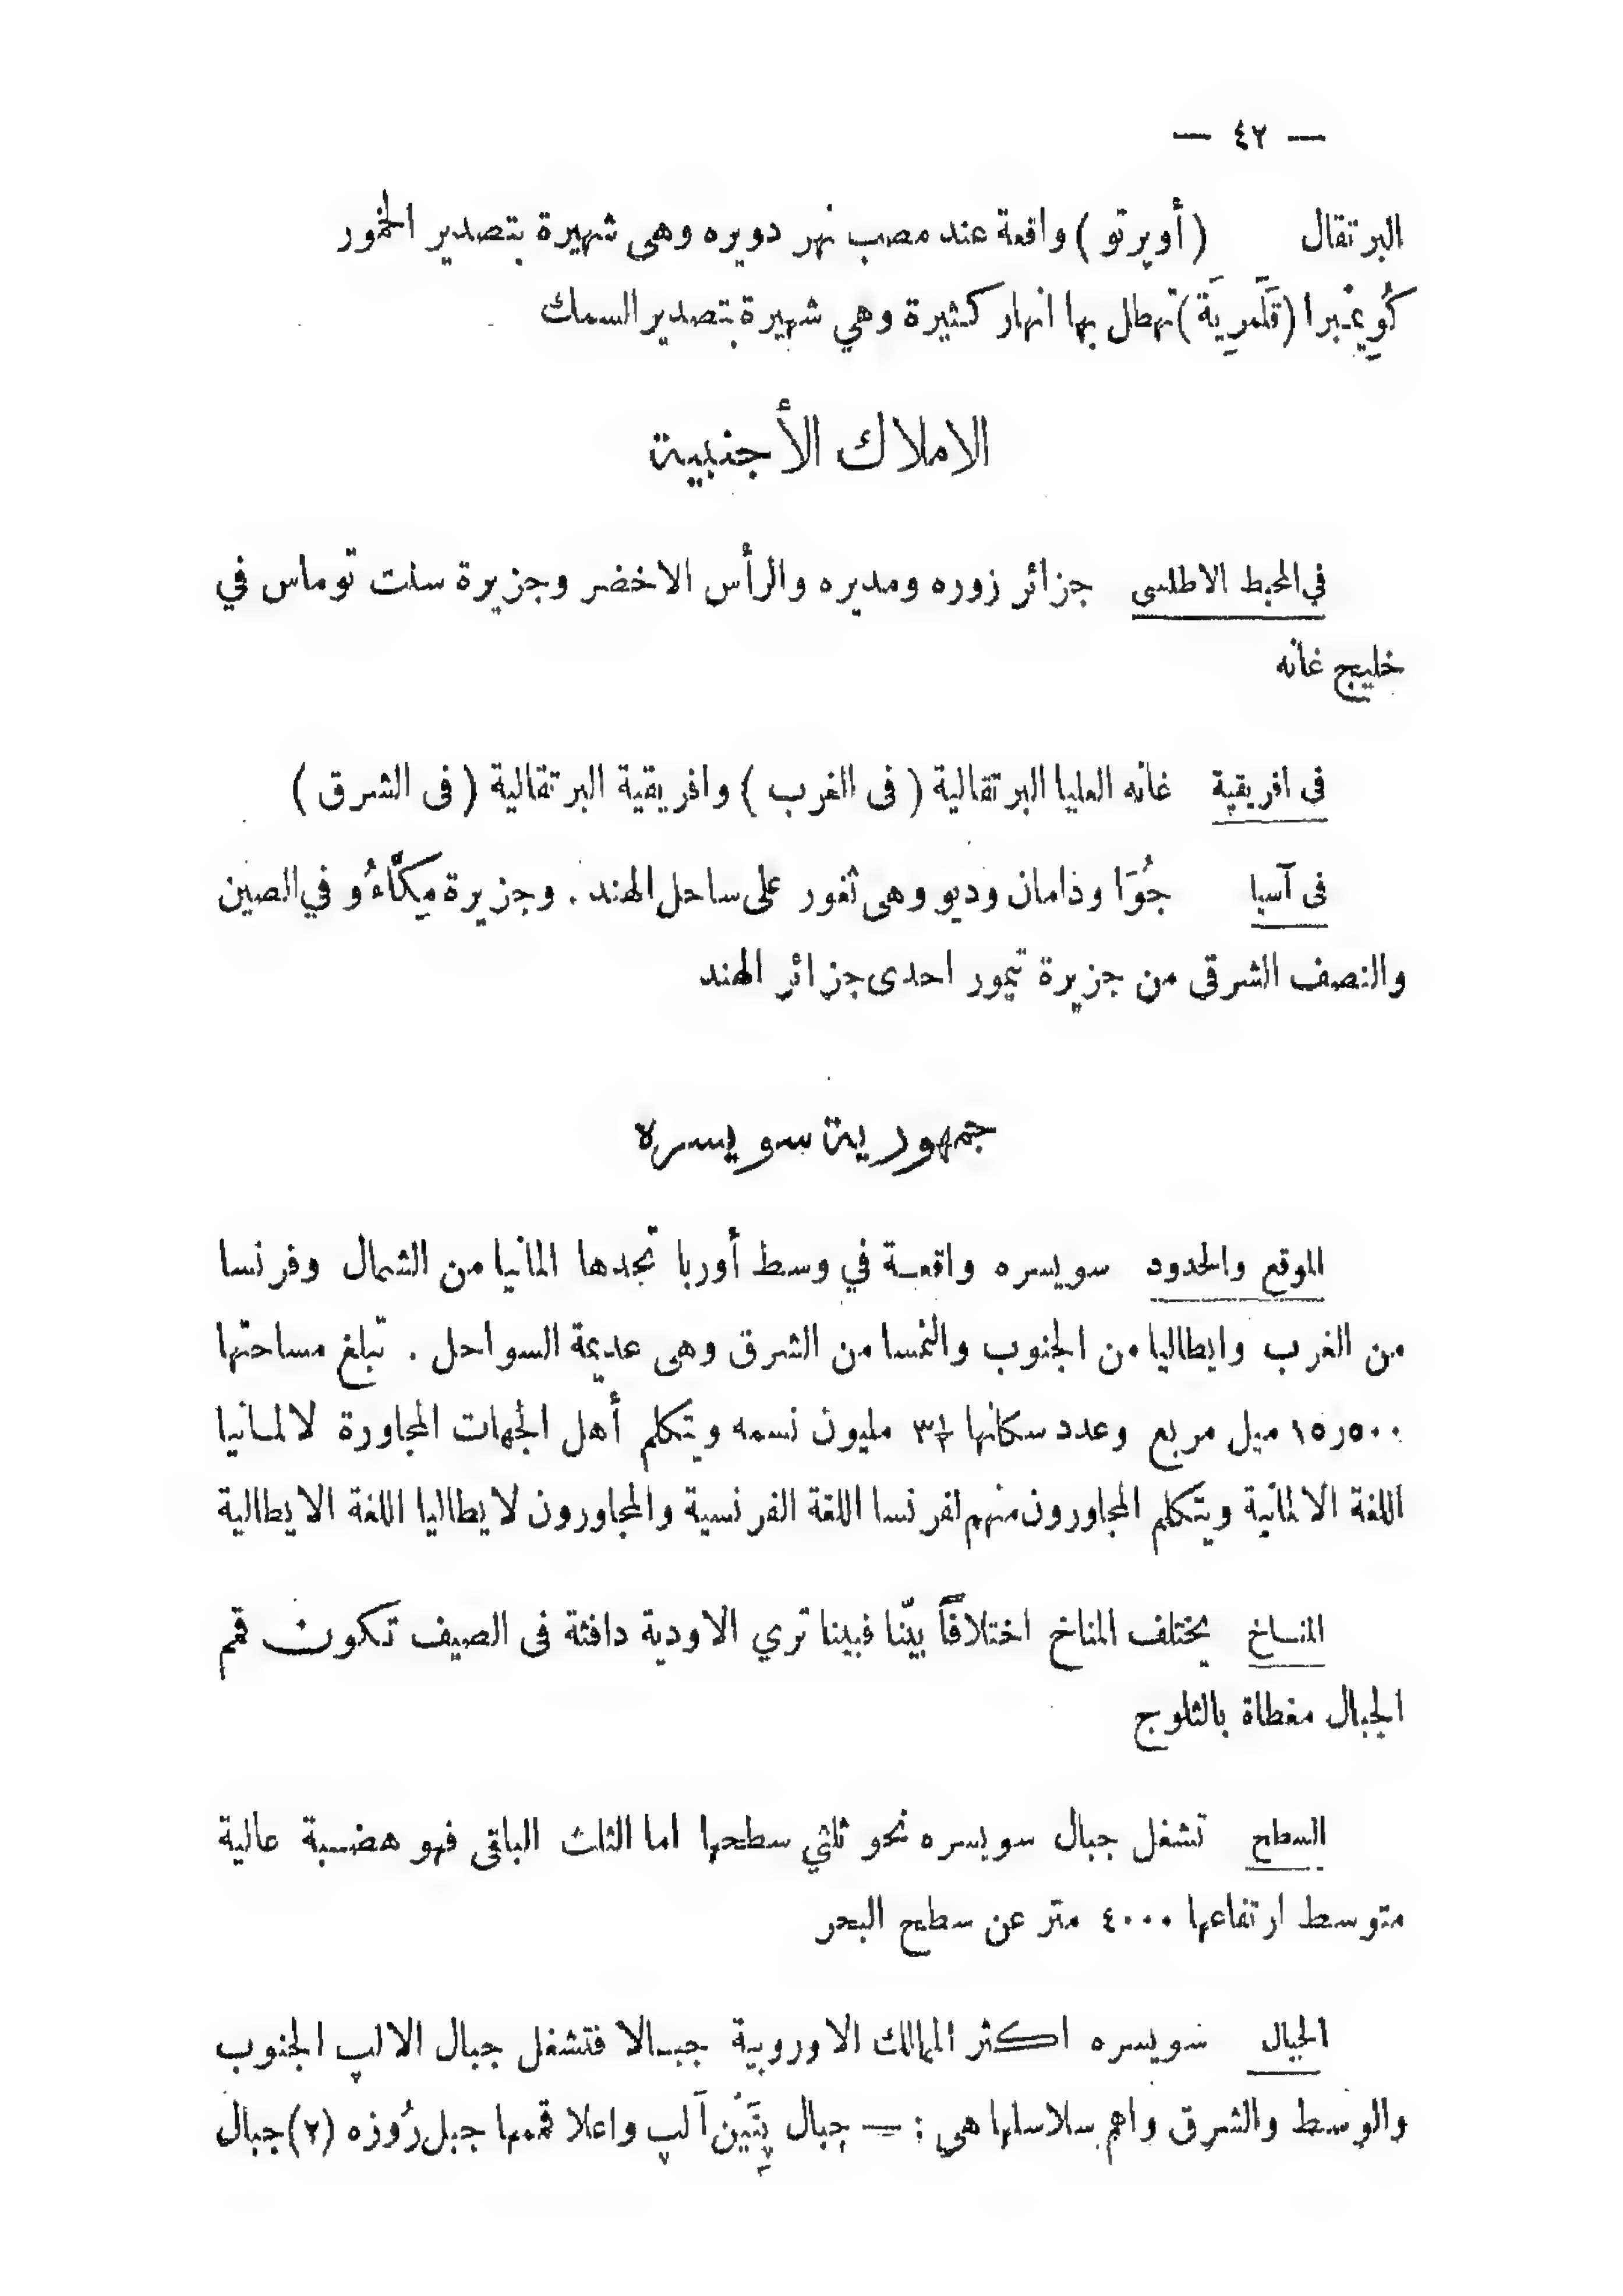 — ٤٢ —
البرتقال (أوبرتو) واقعة عند مصب نهر دويره وهى شهيرة بتصدير الخمور
كُوِيمْبرا (قَلَمرِيَة) تهطل بها انهار كثيرة وهي شهيرة بتصدير السمك
الاملاك الأجنبية
في المحيط الاطلسى جزائر زوره ومديره والرأس الاخضر وجزيرة سنت توماس في
خليج غانه
فى افريقية غانه العليا البرتقالية (فى الغرب) وافريقية البرتقالية (فى الشرق)
فى آسيا جُوَا وذامان وديو وهى ثغور على ساحل الهند . وجزيرة مِكَّاءُو في الصين
والنصف الشرقى من جزيرة تيمور احدى جزائر الهند
جمهورية سويسره
الموقع والحدود سويسره واقعة في وسط أوربا تحدها المانيا من الشمال وفرنسا
من الغرب وايطاليا من الجنوب والنمسا من الشرق وهى عديمة السواحل . تبلغ مساحتها
١٥٫٥٠٠ ميل مربع وعدد سكانها ٣½ مليون نسمه ويتكلم أهل الجهات المجاورة لالمانيا
اللغة الالمانية ويتكلم المجاورون منهم لفرنسا اللغة الفرنسية والمجاورون لايطاليا اللغة الايطالية
المناخ يختلف المناخ اختلافاً بيّنا فبينا تري الاودية دافئة فى الصيف تكون قمم
الجبال مغطاة بالثلوج
السطح تشغل جبال سويسره نحو ثلثي سطحها اما الثلث الباقى فهو هضبة عالية
متوسط ارتفاعها ٤٠٠٠ متر عن سطح البحر
الجبال سويسره اكثر الممالك الاوروبية جبالا فتشغل جبال الالپ الجنوب
والوسط والشرق واهم سلاسلها هي : — جبال پِنَيْن آلپ واعلا قممها جبل رُوزه (٢) جبال